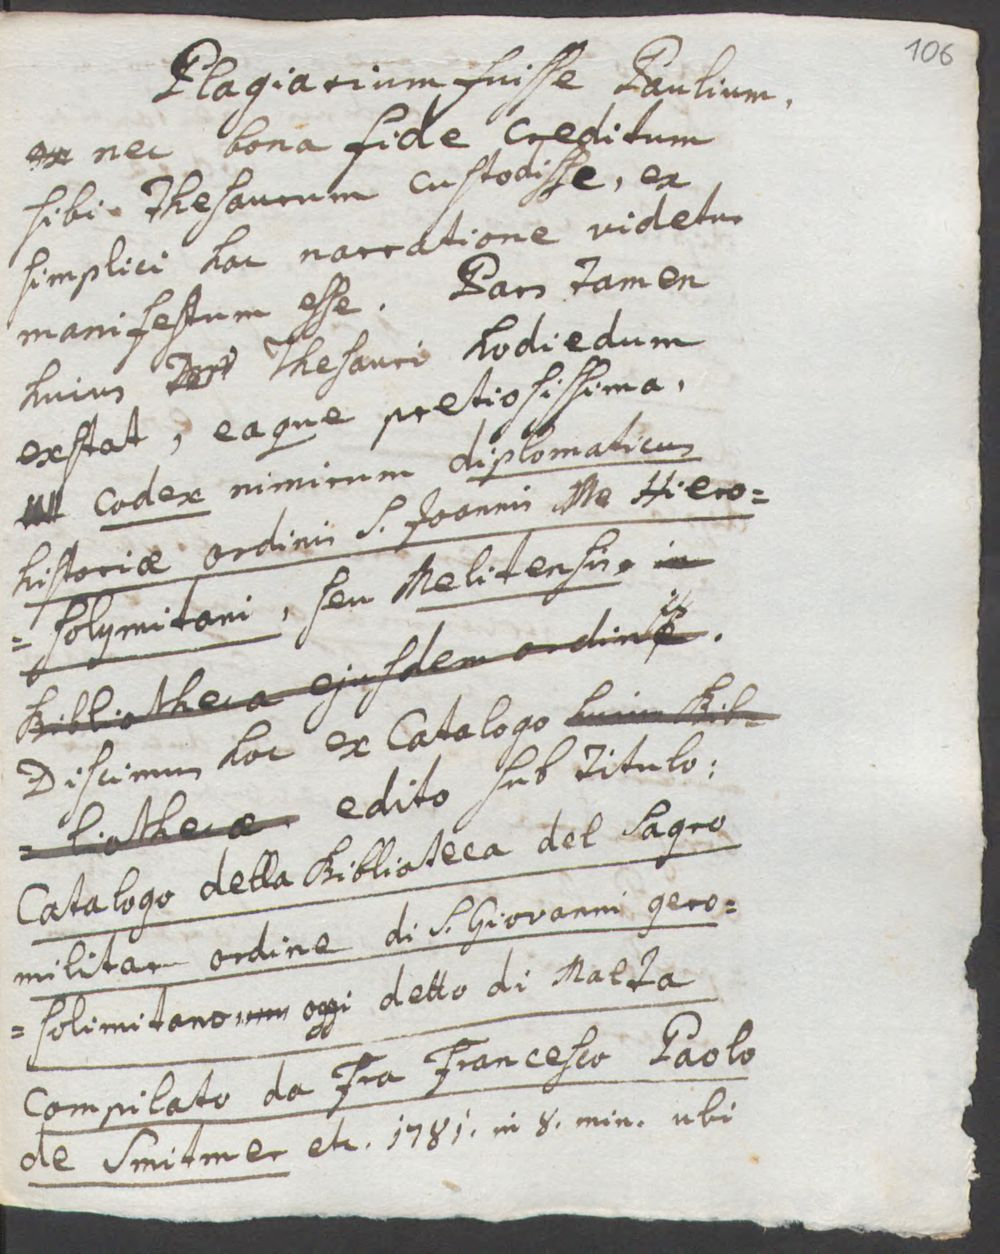 106
Plagiarium fuisse Paulium,
ex nec bona fide creditum
sibi Thesaurum custodisse, ex
simplici hac narratione videtur
manifestum esse. Pars tamen
huius Thesauri hodiedum
exstat, eaque pretiosissima,
Codex nimirum diplomaticus
historiæ ordinis S. Joannis Hiero=
=solymitani, seu Melitensis. in
Bibliotheca ejusdem ordinis.
Discimus hoc ex Catalogo huius Bib-
=liothecæ edito sub titulo:
Catalogo della Biblioteca del Sagro
militar ordine di S. Giovanni gero=
=solimitano oggi detto di Malta
Compilato da Fra Francesco Paolo
de Smitmer etc. 1781. in 8. min. ubi